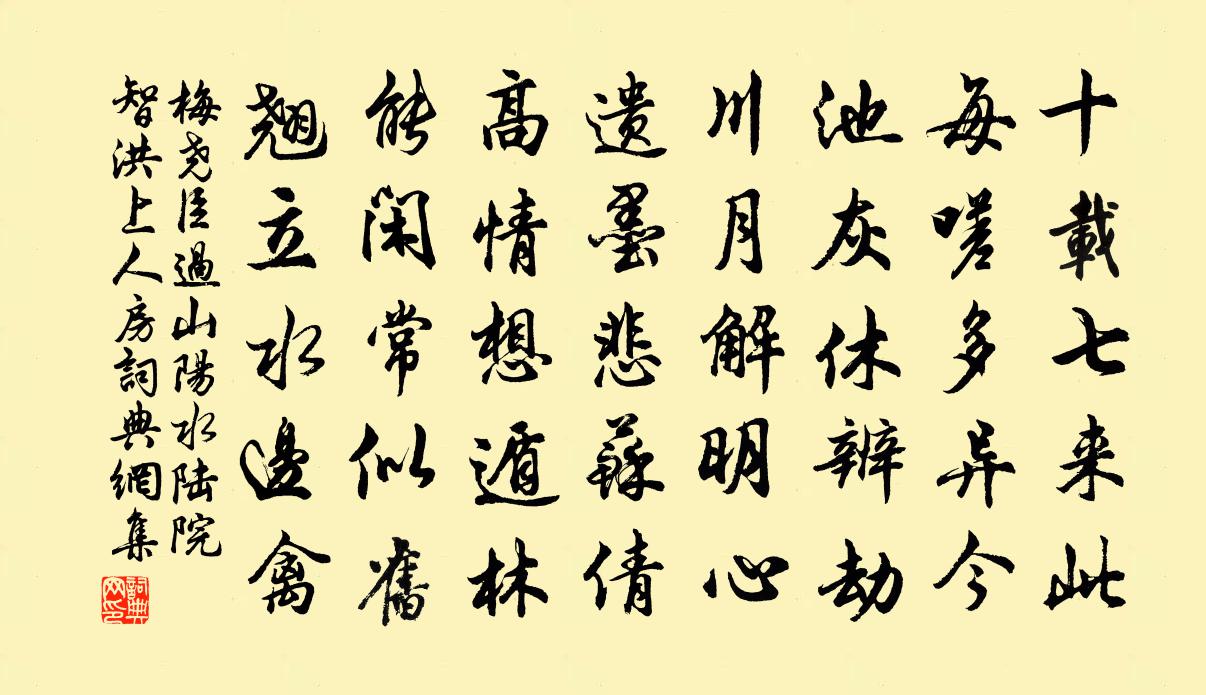 十載七来此
每嗟多异今
池灰休辨劫
川月解明心
遗墨悲蘇倩
高情想遁林
能闲常似舊
翘立水邊禽
梅尧臣過山陽水陆院
智洪上人房詞典網集